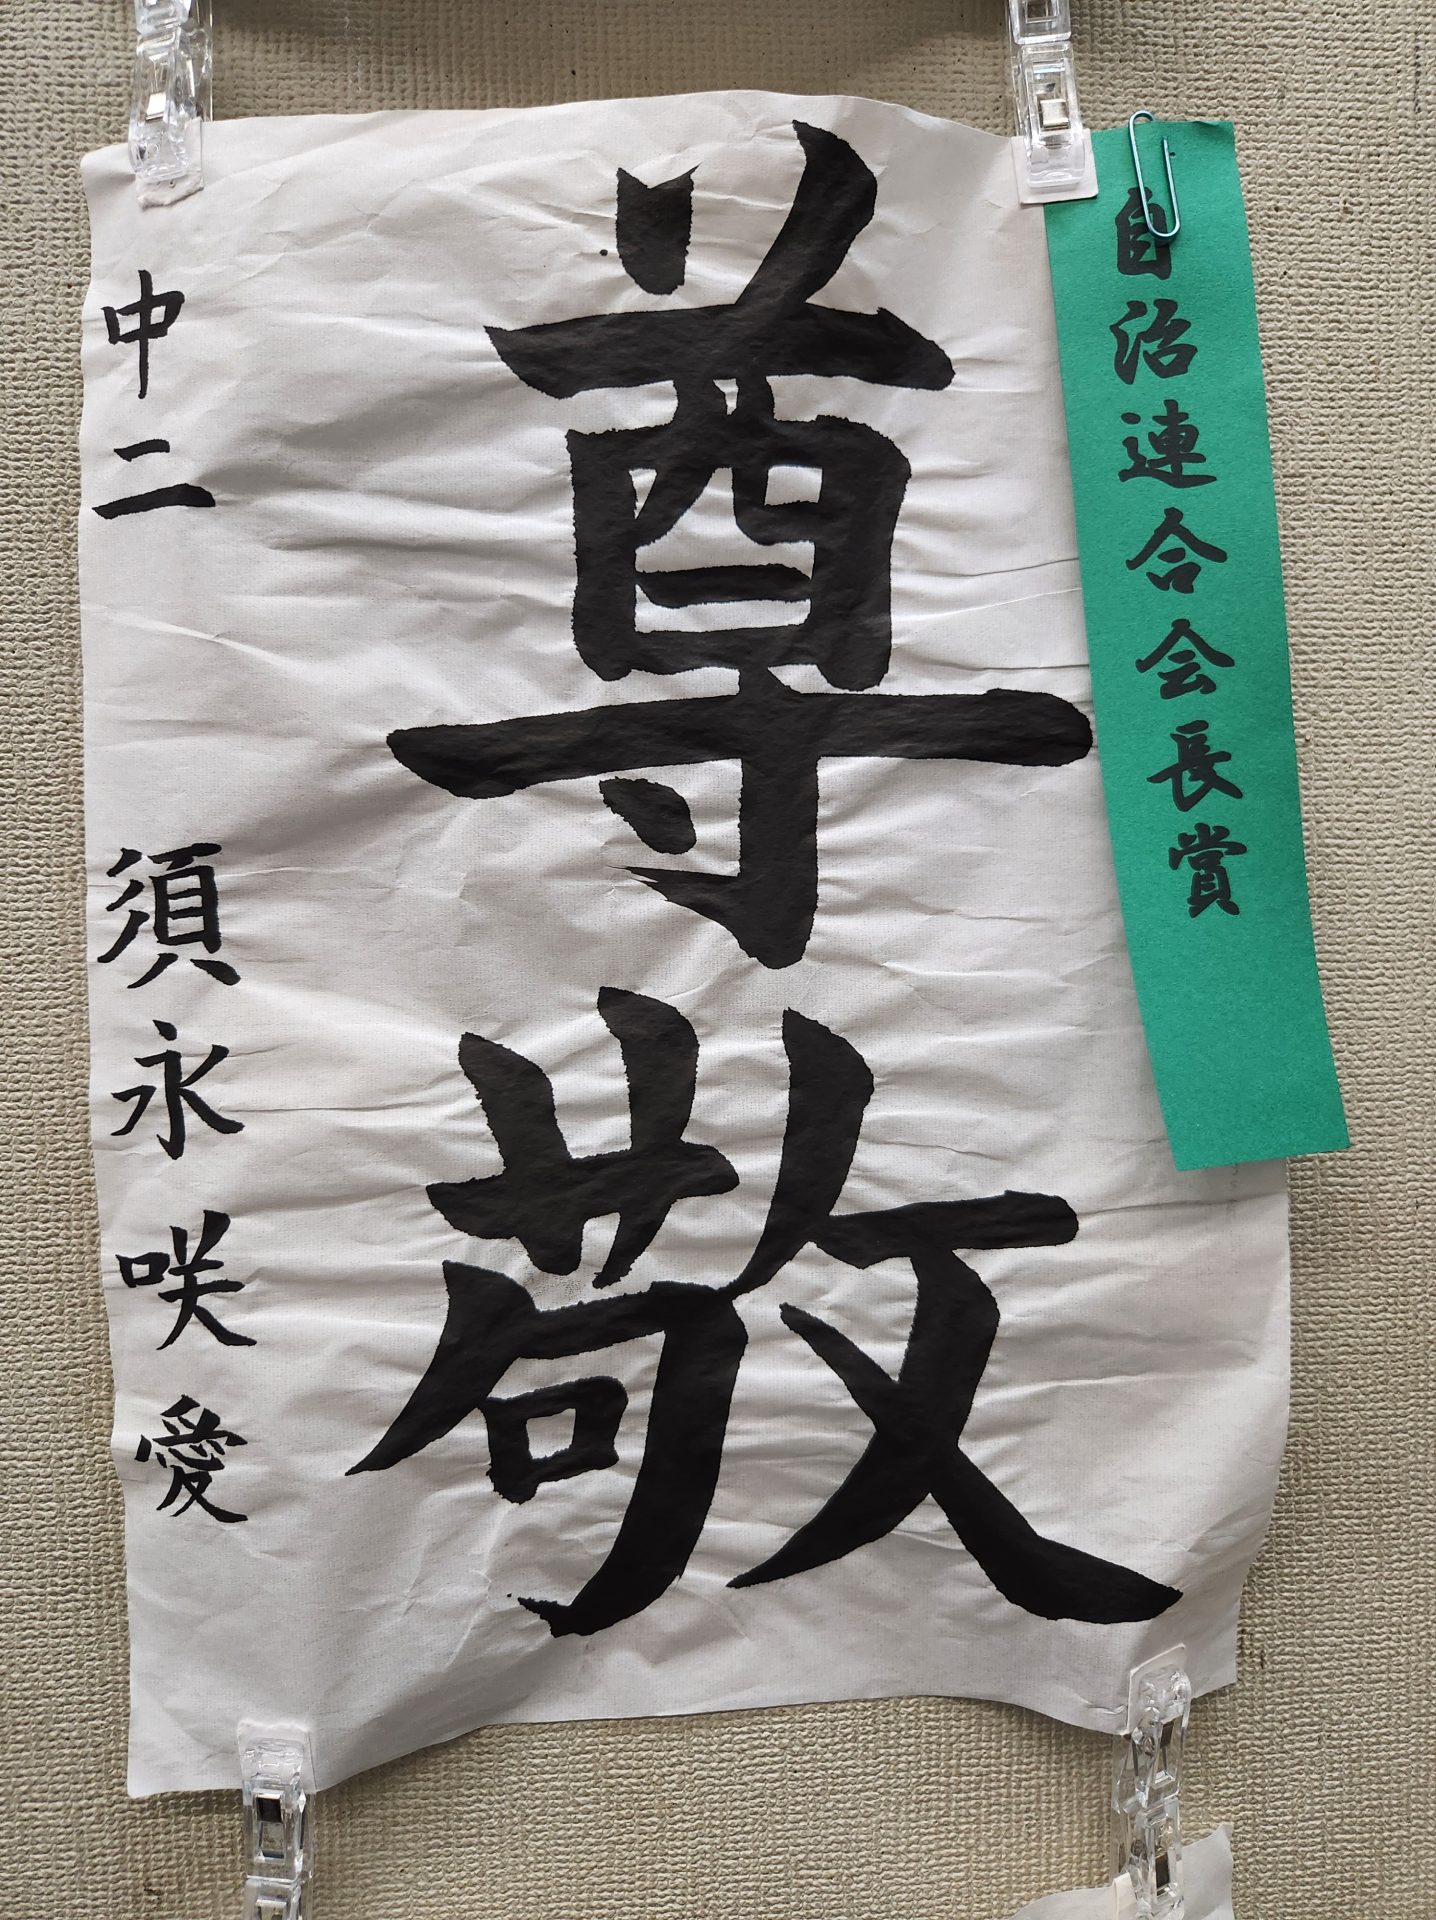 自治連合会長賞
尊敬
中二 須永咲愛